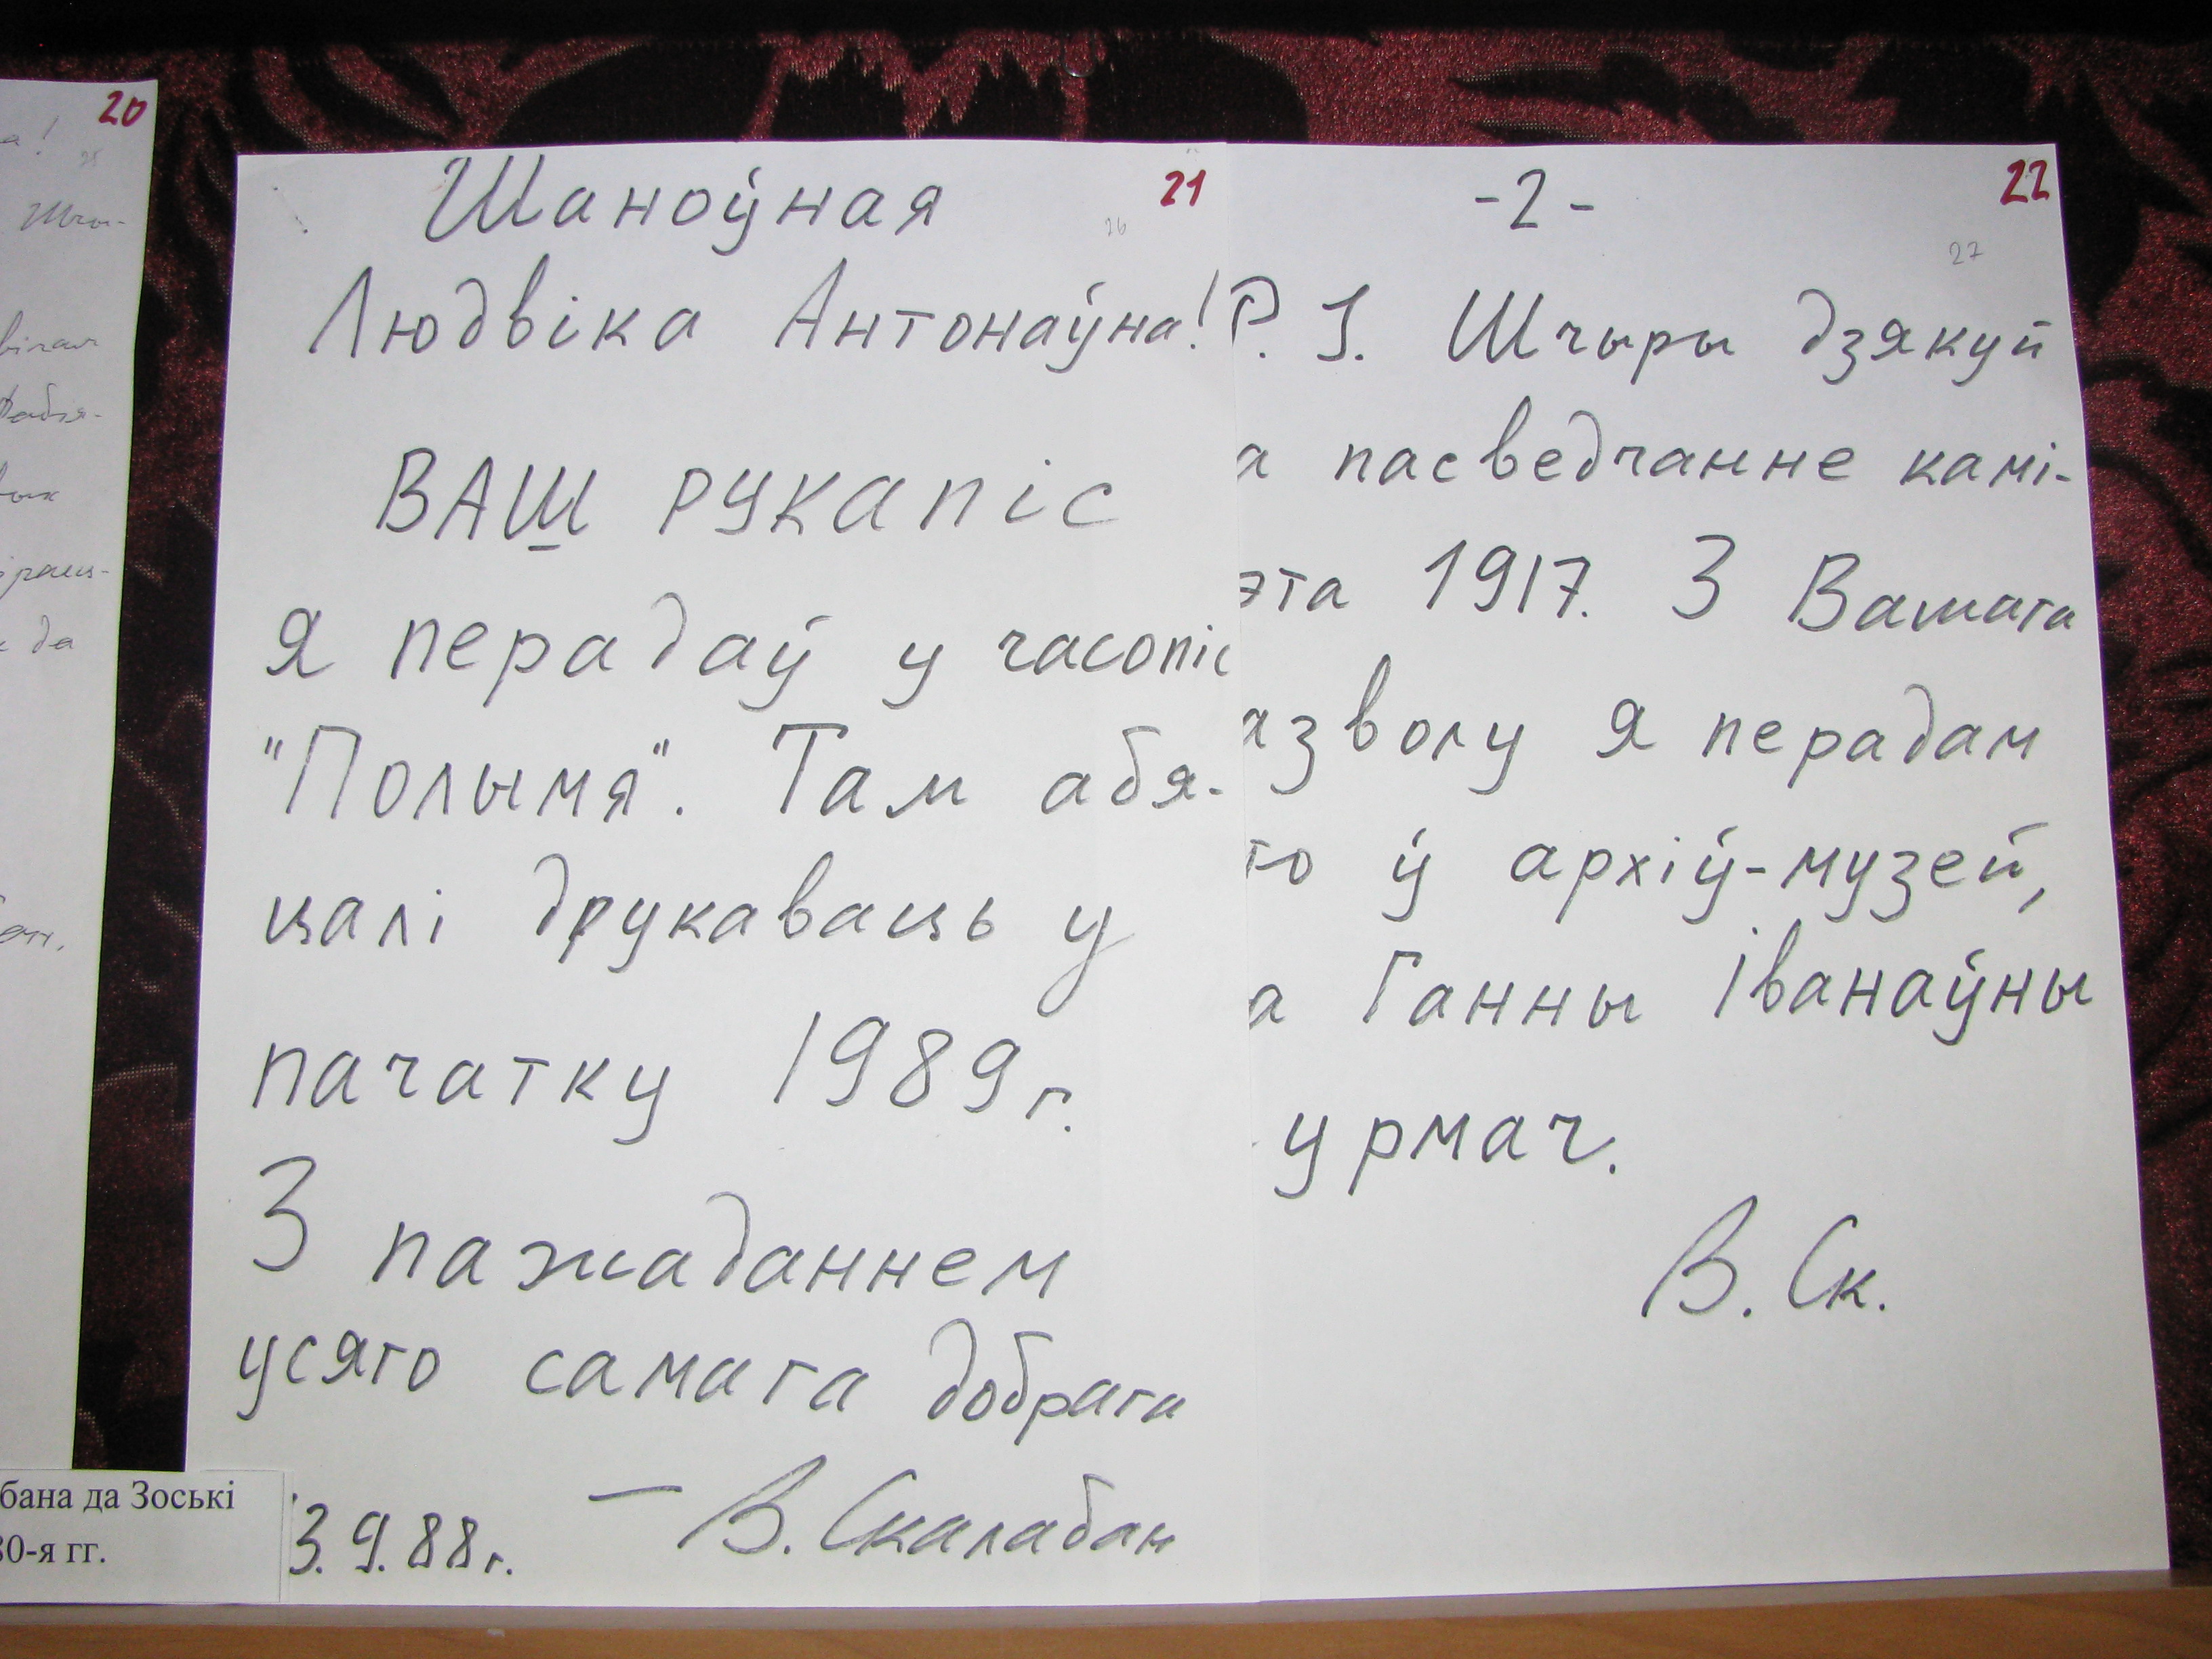 20
21
Шаноўная
26
Людвіка Антонаўна!
ВАШ рукапіс
я перадаў у часопіс
"Полымя". Там абя-
цалі друкаваць у
пачатку 1989 г.
З пажаданнем
усяго самага добрага
— В. Скалабан
3. 9. 88 г.
22
-2-
27
P. S. Шчыры дзякуй
а пасведчанне камі-
эта 1917. З Вашага
азволу я перадам
го ў архіў-музей,
а Ганны Іванаўны
урмач.
В. Ск.
бана да Зоські
80-я гг.
да